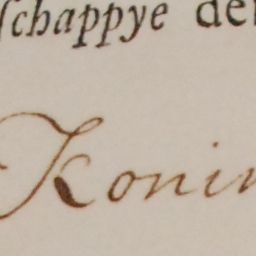 ſchappye der
Konin